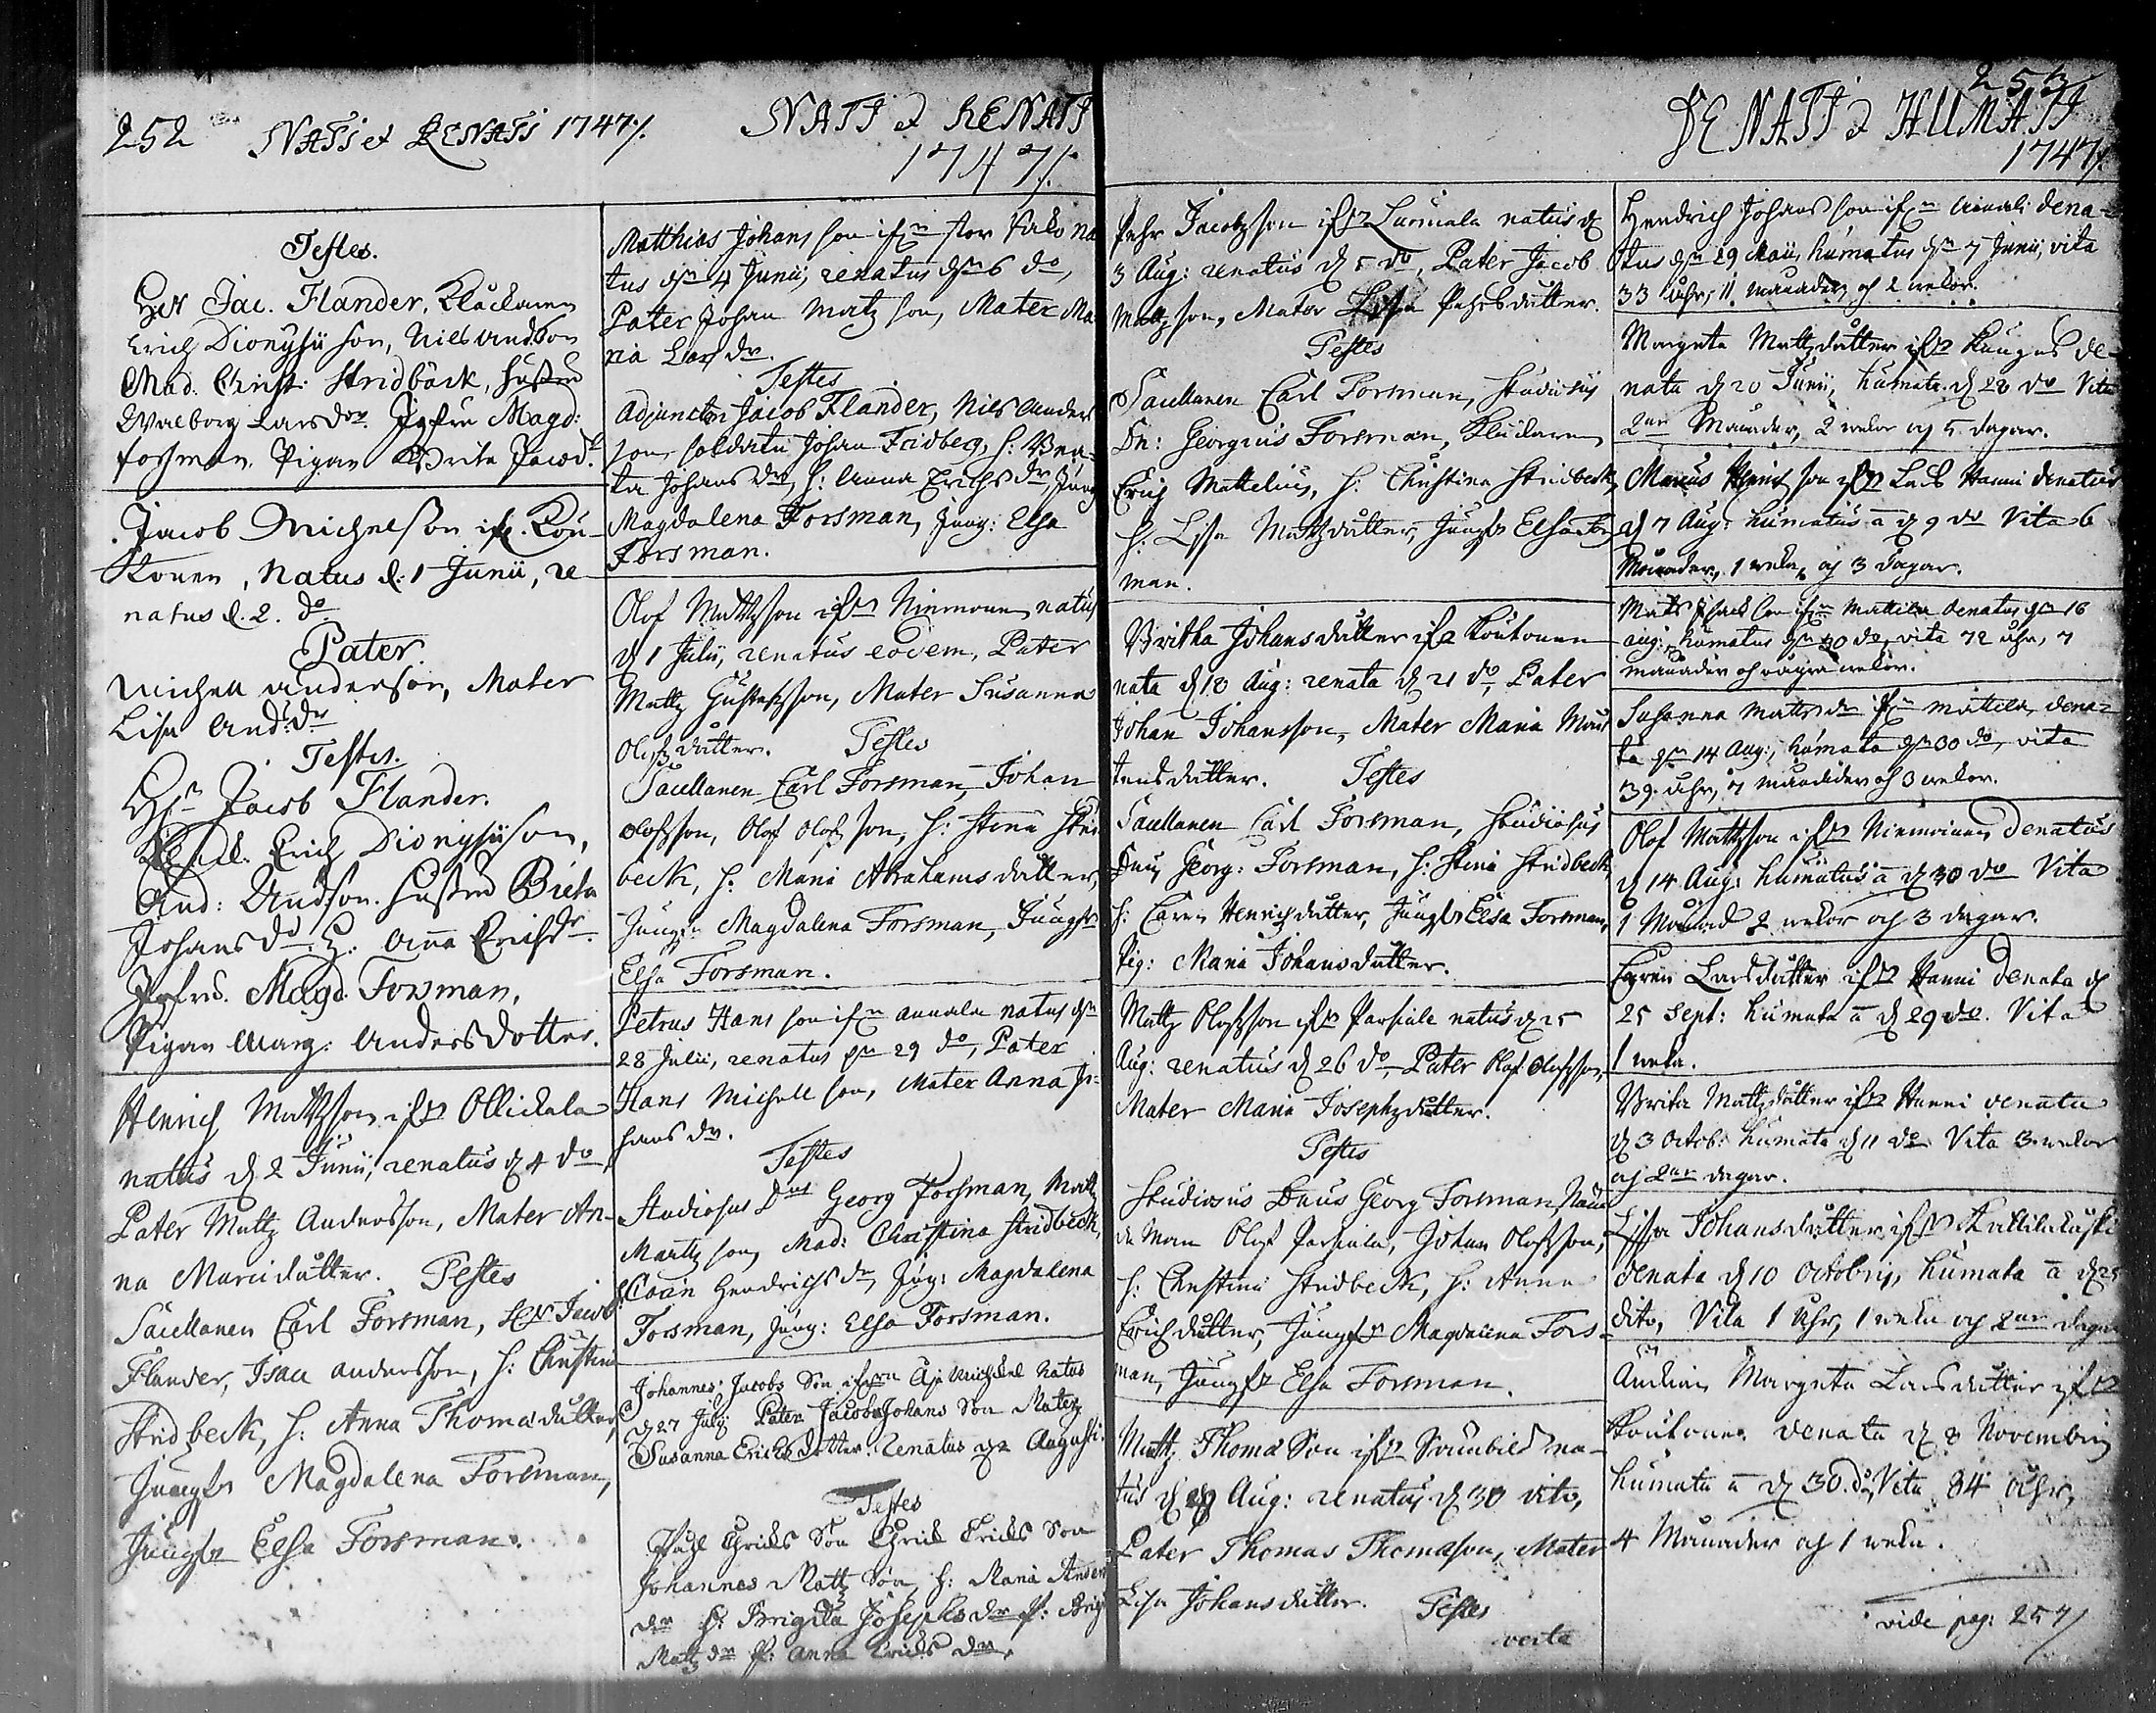 252 NATI et RENATI 1747/.
Testes.
Her Jac. Flander, Klåckaren
Erich Dionysii son, Nils Andson
Mad. Christ: Stridbäck, hustru
Walborg Larsdr. Jgfru Magd:
Forsman. Pigan Brita Jacobdr.
Jacob Michelson ifr. Kou-
konen, Natus d. 1 Junii, re
natus d. 2. do
Pater.
Michell Anderson, Mater
Lisa And:dr
Testes.
Hr Jacob Flander.
Erich Dionysiison,
And: Andson. hustru Brita
Johansdr. H: Anna Erichsdr.
Jgfru. Magd. Forsman,
Pigan Marg: Andersdotter.
Henrich Mattzson ifrn Ollickala
natus d 2 Junii, renatus d 4 do,
Pater Mattz Andersson, Mater An-
na Marcidotter. Testes
Sacellanen Carl Forsman, Her Jacob
Flander, Isac andersson, h: Christina
Stridbeck, h: Anna Thomædotter,
Jungfr Magdalena Forsman,
Jungfr Elsa Forsman.
NATI et RENATI
1747/.
Matthias Johansson ifrn stor na
tus dn 4 Junii, renatus dn 6 do,
Pater Johan Matzson, Mater Ma
ria Larsdr.
Testes
Adjuncten Jacob Flander, Nils Anders
son, soldaten Johan Fridberg, h: Brita
Johansdr, h: Anna Erichsdr, Jung
Magdalena Forsman, Jung: Elsa
Forsman.
Olof Mattzson ifrn Niemonen natus
d 1 Julii, renatus eodem, Pater
Mattz Gustafsson, Mater Susanna
Olofsdotter. Testes
Sacellanen Carl Forsman, Johan
Olofsson, Olof Olofsson, h: Stina Strid
beck, h: Maria Abrahamsdotter,
Jungfr Magdalena Forsman, Jungfr
Elsa Forsman.
Petrus Hansson ifrn Annala natus dn
28 Julii, renatus dn 29 do, Pater
Hans Michellson, Mater Anna Jo-
hansdr.
Testes
Studiosus Dnus Georg Forsman, Mattz
Martzson, Mad: Christina Stridbeck,
Carin Hendrichsdr, Jgr: Magdalena
Forsman, Jung: Elsa Forsman.
Johannes Jacobs Son ifrn Michkel Natus
d 27 July Pater Jacob Johans Son Mater
Susanna Ericks dotter. Renatus d 2 Augusti.
Testes
Påhl Ericks Son Erick Ericks Son
Johannes Mattz Son, h: Maria Anders
dr h: Brigita Josephsdr P: Brig
Mattzdr P: Anna Ericks dr.
Pehr Jacobsson ifrn Laurnala natus d
3 Aug: renatus d 5 do, Pater Jacob
Mattzson, Mater Lisa Pehrsdotter.
Testes
Sacellanen Carl Forsman, Studiosus
Dn: Georgius Forsman, Klåckaren
Erich Mattelius, h: Christina Stridbeck,
h: Lisa Mattzdotter, Jungfr Elsa Fors
man.
Britha Johansdotter ifrn Koutonen
nata d 18 Aug: renata d 21 do, Pater
Johan Johansson, Mater Maria Mår
tensdotter. Testes
Sacellanen Carl Forsman, Studiosus
Dnus Georg: Forsman, h: Stina Stridbeck,
h: Caren Henrichdotter, Jungfr Elsa Forsman,
Pig: Maria Johansdotter.
Mattz Olofsson ifrn Parsiala natus d 25
Aug: renatus d 26 do, Pater Olof Olofsson,
Mater Maria Josephzdotter.
Testes
Studiosus Dnus Georg Forsman,
Olof Parsiala, Johan Olofsson,
h: Christina Stridbeck, h: Anna
Erichdotter, Jungfr Magdalena Fors-
man, Jungfr Elsa Forsman.
Mattz Thomæ Son ifrn na-
tus d Aug: renatus d 30 dito,
Pater Thomas Thomasson, Mater
Lisa Johansdotter. Testes
verte
253
DENATI et HUMATI
1747/.
Hendrich Johansson ifrn Annala dena-
tus dn 29 Maii, humatus dn 7 Junii, vita
33 åhr, 11 månader och 2 wekor.
Margeta Mattzdotter ifrn Kangas de-
nata d 20 Junii, humata d 28 do Vita
2ne Månader, 2 wekor och 5 dagar.
Marcus Henrichson ifrn Lars Hanni denatus
d 7 Aug: humatus a d 9 do Vita 6
Månader, 1 weka, och 3 dagar.
Mats ifrn Mattila denatus dn 16
Aug: humatus dn 30 do, vita 72 åhr, 7
månader och några wekor.
Susanna Mattsdr ifrn Mattila dena-
ta dn 14 Aug:, humata dn 30 do, vita
39 åhr, 7 månader och 3 wekor.
Olof Mattzson ifrn Niemoinen denatus
d 14 Aug: humatus a d 30 do Vita
1 Månad 2 wekor och 3 dagar.
Caren Larsdotter ifrn Hanni denata d
25 Sept: humata a d 29 do. Vita
1 weka.
Brita Mattzdotter ifrn Hanni denata
d 3 Octob: humata d 11 do Vita 3 wekor
och 2ne dagar.
Lissa Johansdotter ifrn Kattilakoski
denata d 10 Octobris, humata a d 25
dito, Vita 1 åhr, 1 weka och 2ne dagar
Änckan Margeta Larsdotter ifrn
Koutonen denata d 8 Novembris
humata a d 30. do, Vita 84 åhr,
4 Månader och 1 weka.
vide pag: 257/